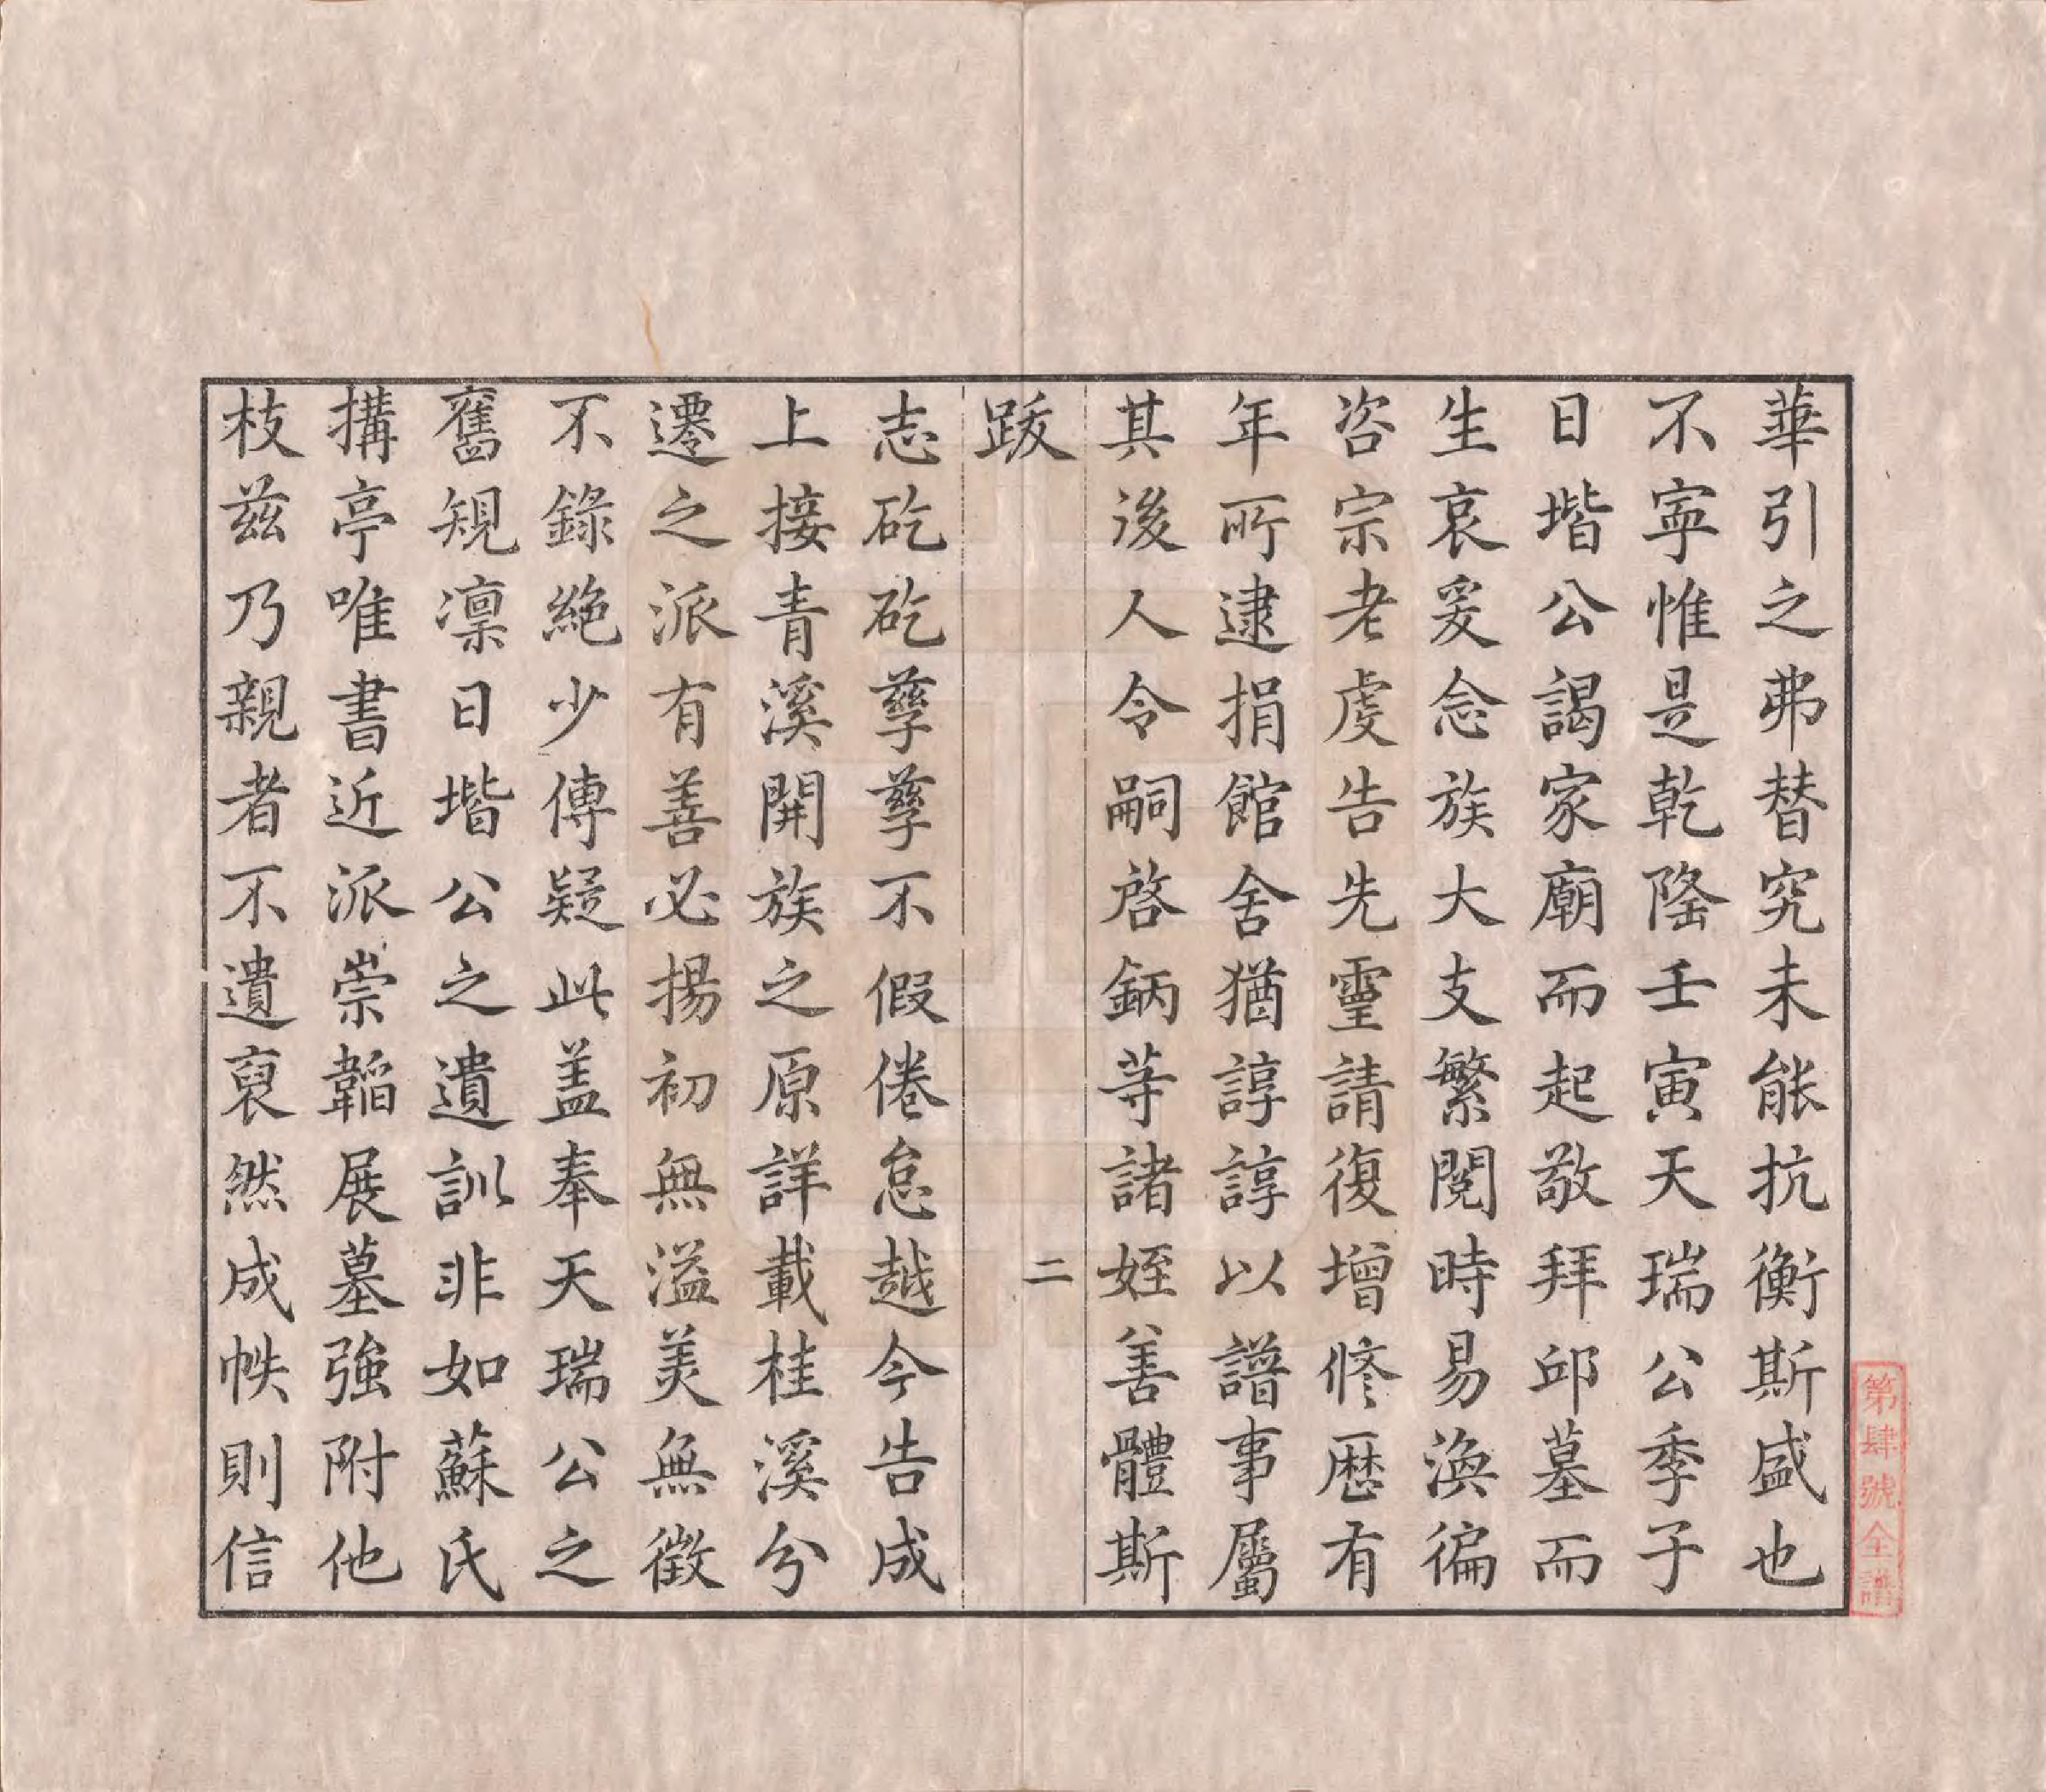 華引之弗替究未能抗衡斯盛也
不寕惟是乾隆壬寅天瑞公季子
日堦公謁家廟而起敬拜邱墓而
生哀爰念族大支繁閱時易渙徧
咨宗老虔告先靈請復增修歴有
年所逮捐館舍猶諄諄以譜事屬
其後人令嗣啓鈵等諸姪善體斯
跋
二
志矻矻孳孳不假倦怠越今告成
上接青溪開族之原詳載桂溪分
遷之派有善必揚初無溢美無徵
不錄絶少傳疑此盖奉天瑞公之
舊規凛日堦公之遺訓非如蘇氏
搆亭唯書近派崇韜展墓強附他
枝兹乃親者不遺裒然成帙則信
第肆號全譜